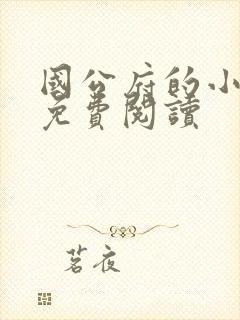 國公府的小
免費閱讀
茗夜